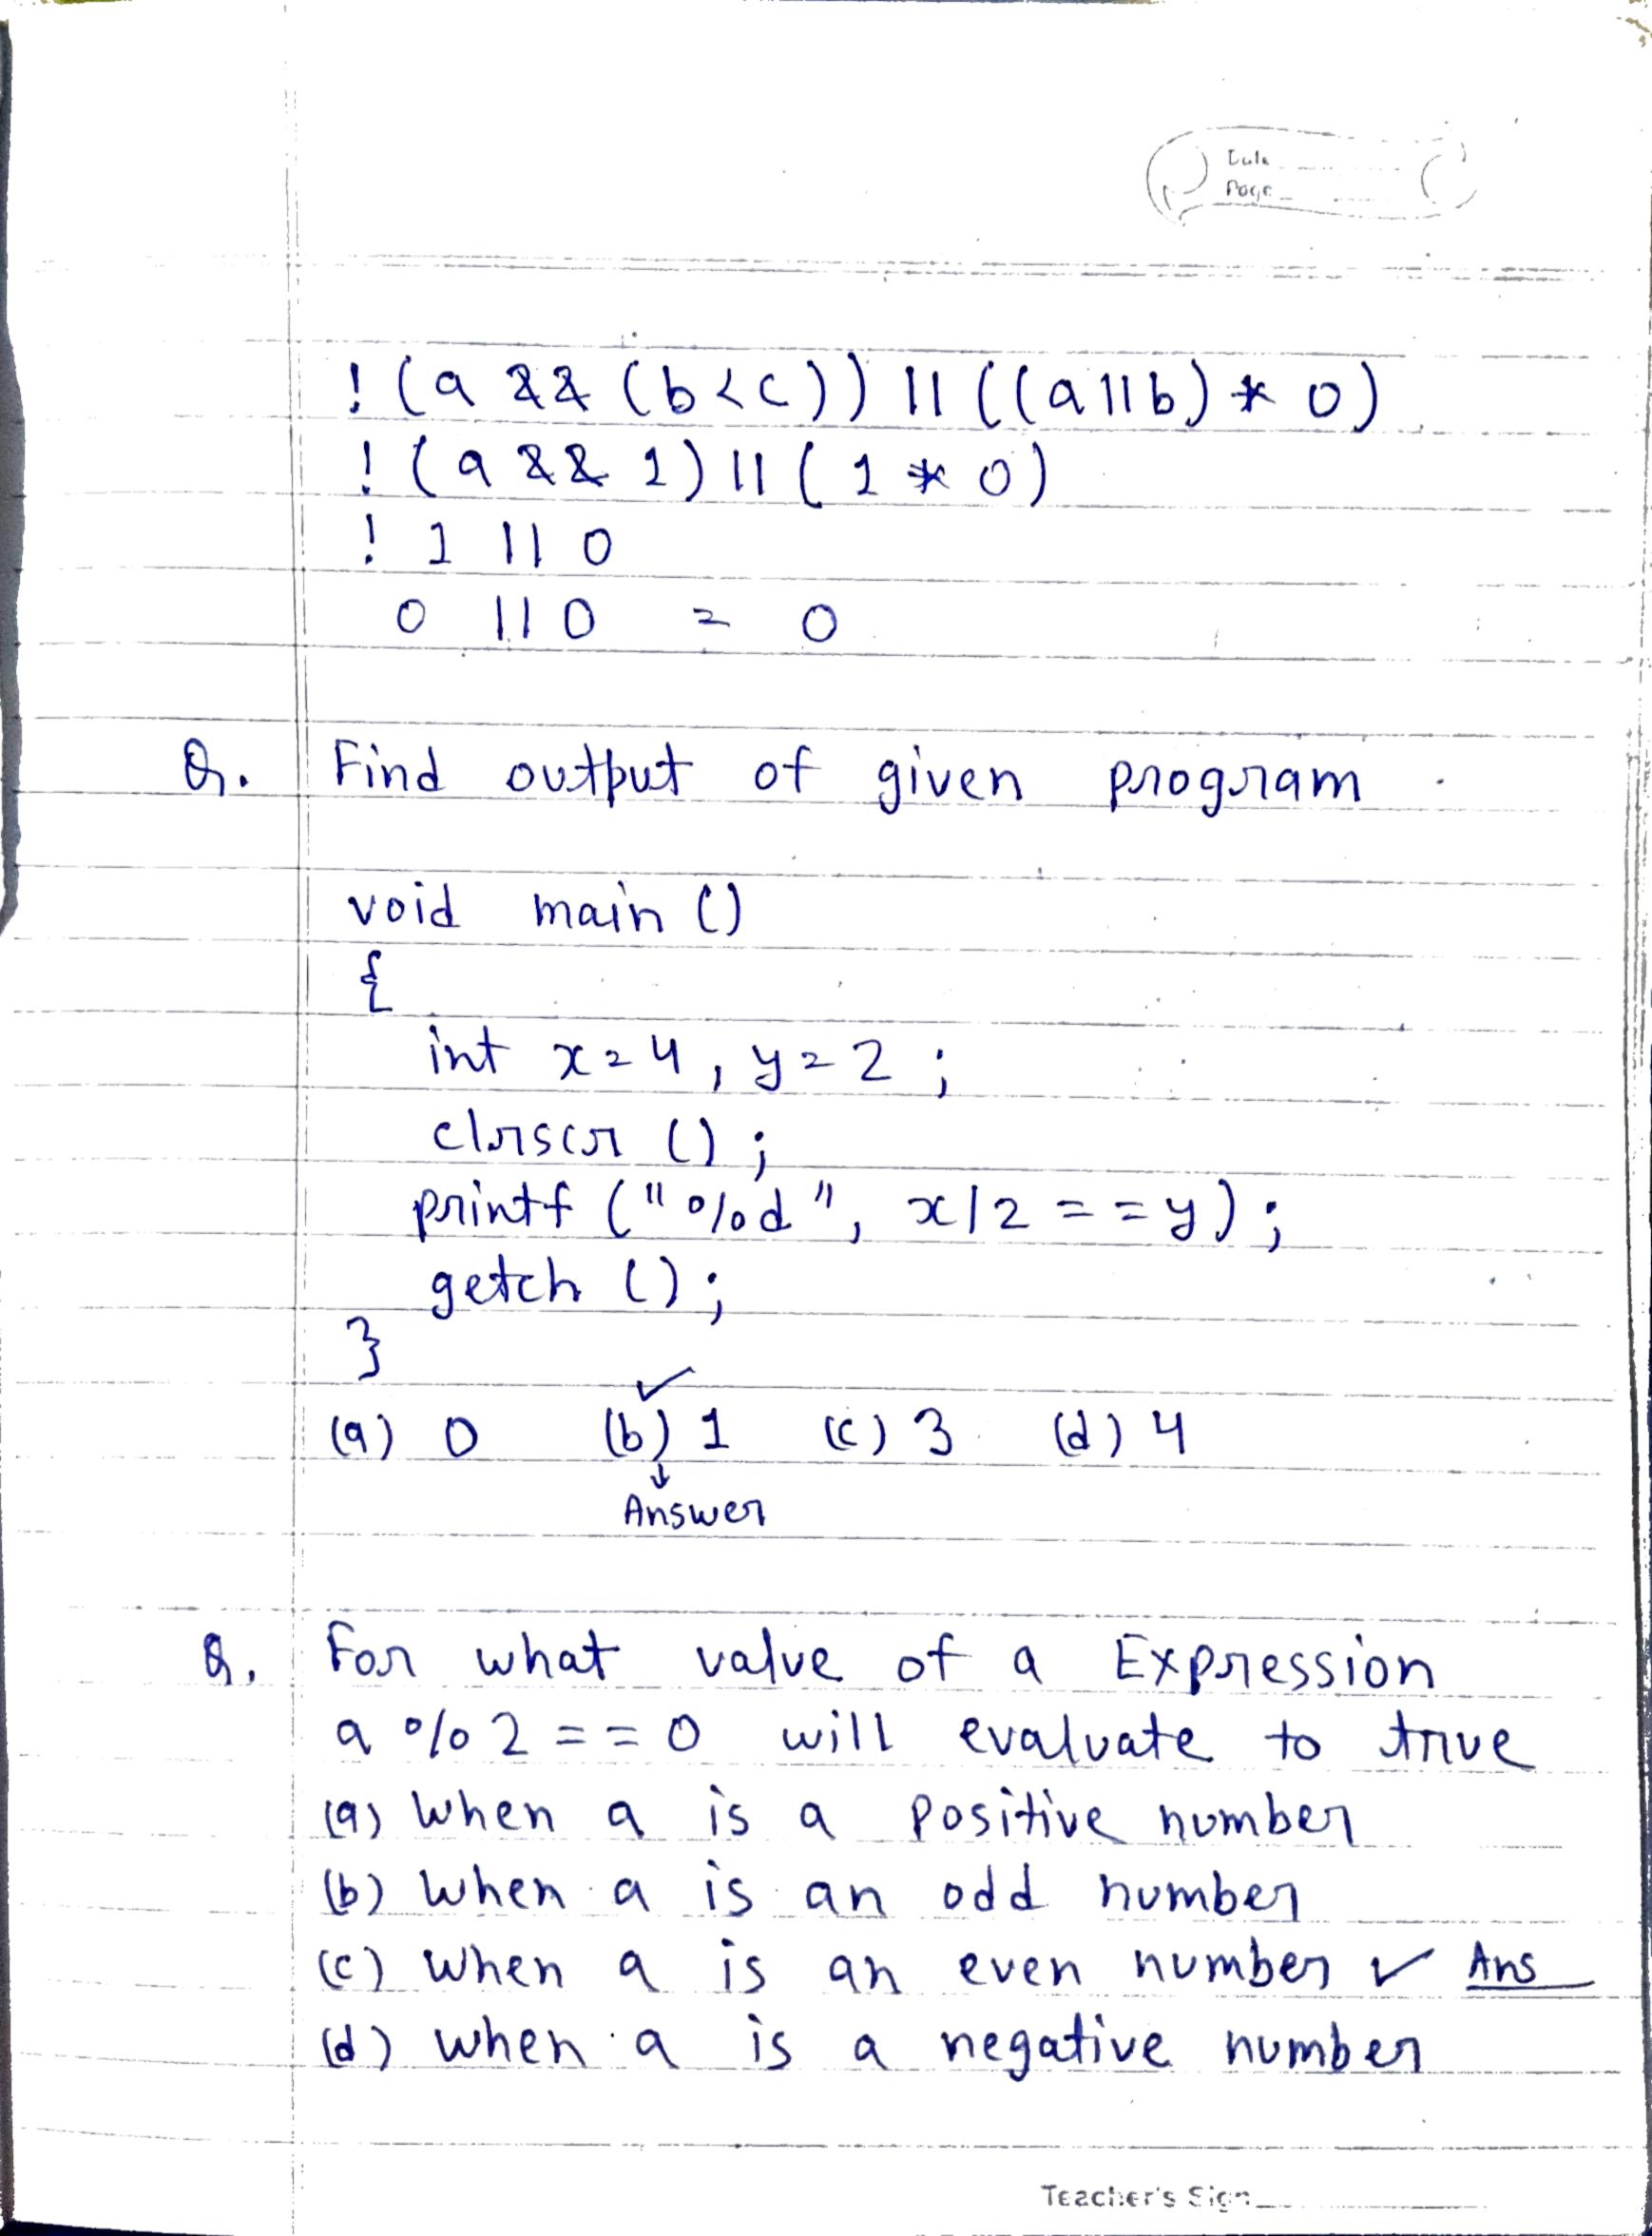 Page
! (a && (b<c)) || ((a||b) * 0)
! (a && 1) || (1 * 0)
! 1 || 0
0 || 0 = 0
Q. Find output of given program.
void main ()
{
int x=4, y=2;
clrscr ();
printf ("%d", x/2 ==y);
getch ();
}
(a) 0 (b) 1 (c) 3 (d) 4
Answer
Q. For what value of a Expression
a %2 ==0 will evaluate to true
(a) When a is a positive number
(b) When a is an odd number
(c) When a is an even number ✓ Ans
(d) when a is a negative number
Teacher's Sign